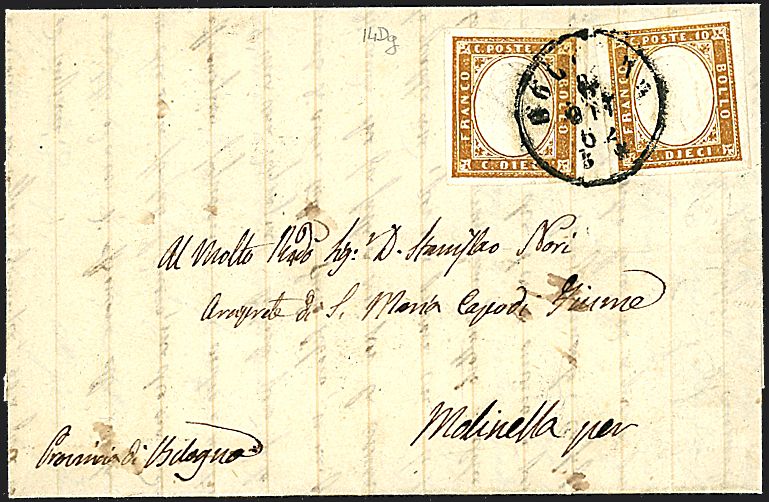 14Dg
C. POSTE
FRANCO
BOLLO
C. DIECI
C. POSTE 10
FRANCO
BOLLO
C. DIECI
BOLOGNA
Al Molto Rdo Sigr. D. Stanislao Nori
Arciprete di S. Maria Capo di Fiume
Molinella per
Provincia di Bologna